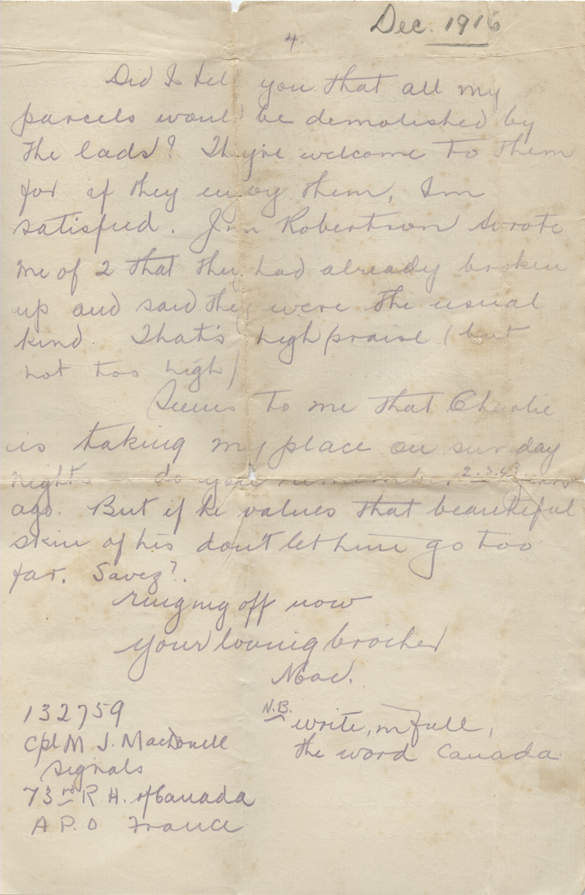 Dec. 1916
4.
Did I tell you that all my
parcels would be demolished by
the lads? They're welcome to them
for if they enjoy them, I'm
satisfied. Jim Robertson wrote
me of 2 that they had already broken
up and said they were the usual
kind. That's high praise (but
not too high)
Seems to me that Charlie
is taking my place on sunday
nights do you remember 2.3.4? years
ago. But if he values that beautiful
skin of his don't let him go too
far. Savez?.
ringing off now
your loving brother
Mac.
132759
Cpl M J. MacDonell
Signals
73rd R H. of Canada
A P.O France
N.B. write, in full,
the word Canada